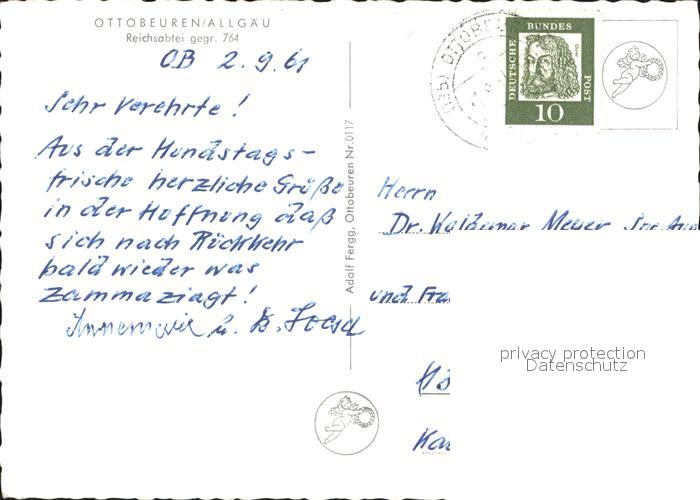 OTTOBEUREN/ALLGÄU
Reichsabtei gegr. 764
OB 2.9.61
Sehr Verehrte!
Aus der Hundstags-
frische herzliche Grüße
in der Hoffnung daß
sich nach Rückkehr
bald wieder was
zammaziagt!
Annemarie u. B.
Adolf Fergg, Ottobeuren Nr.0117
OTTOBEU
DEUTSCHE
BUNDES
POST
Dürer
10
Herrn
Dr. Waldemar Meuer
und Fra
Ka
privacy protection
Datenschutz